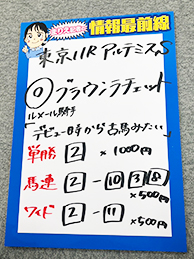 情報最前線
東京11R アルテミスS
◎ブラウンラチェット
ルメール騎手
「デビュー時から古馬みたい」
単勝 2 × 1000円
馬連 2 - 10 3 8 ×500円
ワイド 2 - 11 ×500円